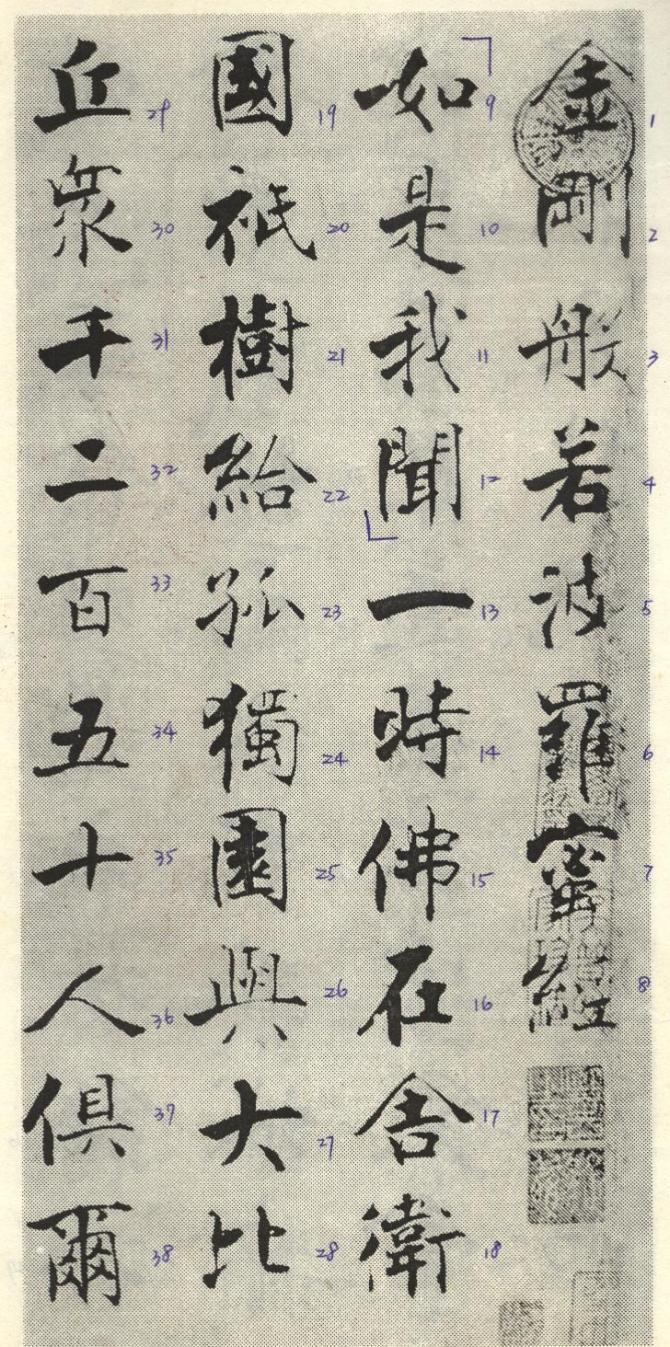 金剛般若波羅蜜經
1 2 3 4 5 6 7 8
如是我聞一時佛在舍衛
9 10 11 12 13 14 15 16 17 18
國祇樹給孤獨園與大比
19 20 21 22 23 24 25 26 27 28
丘衆千二百五十人俱爾
29 30 31 32 33 34 35 36 37 38